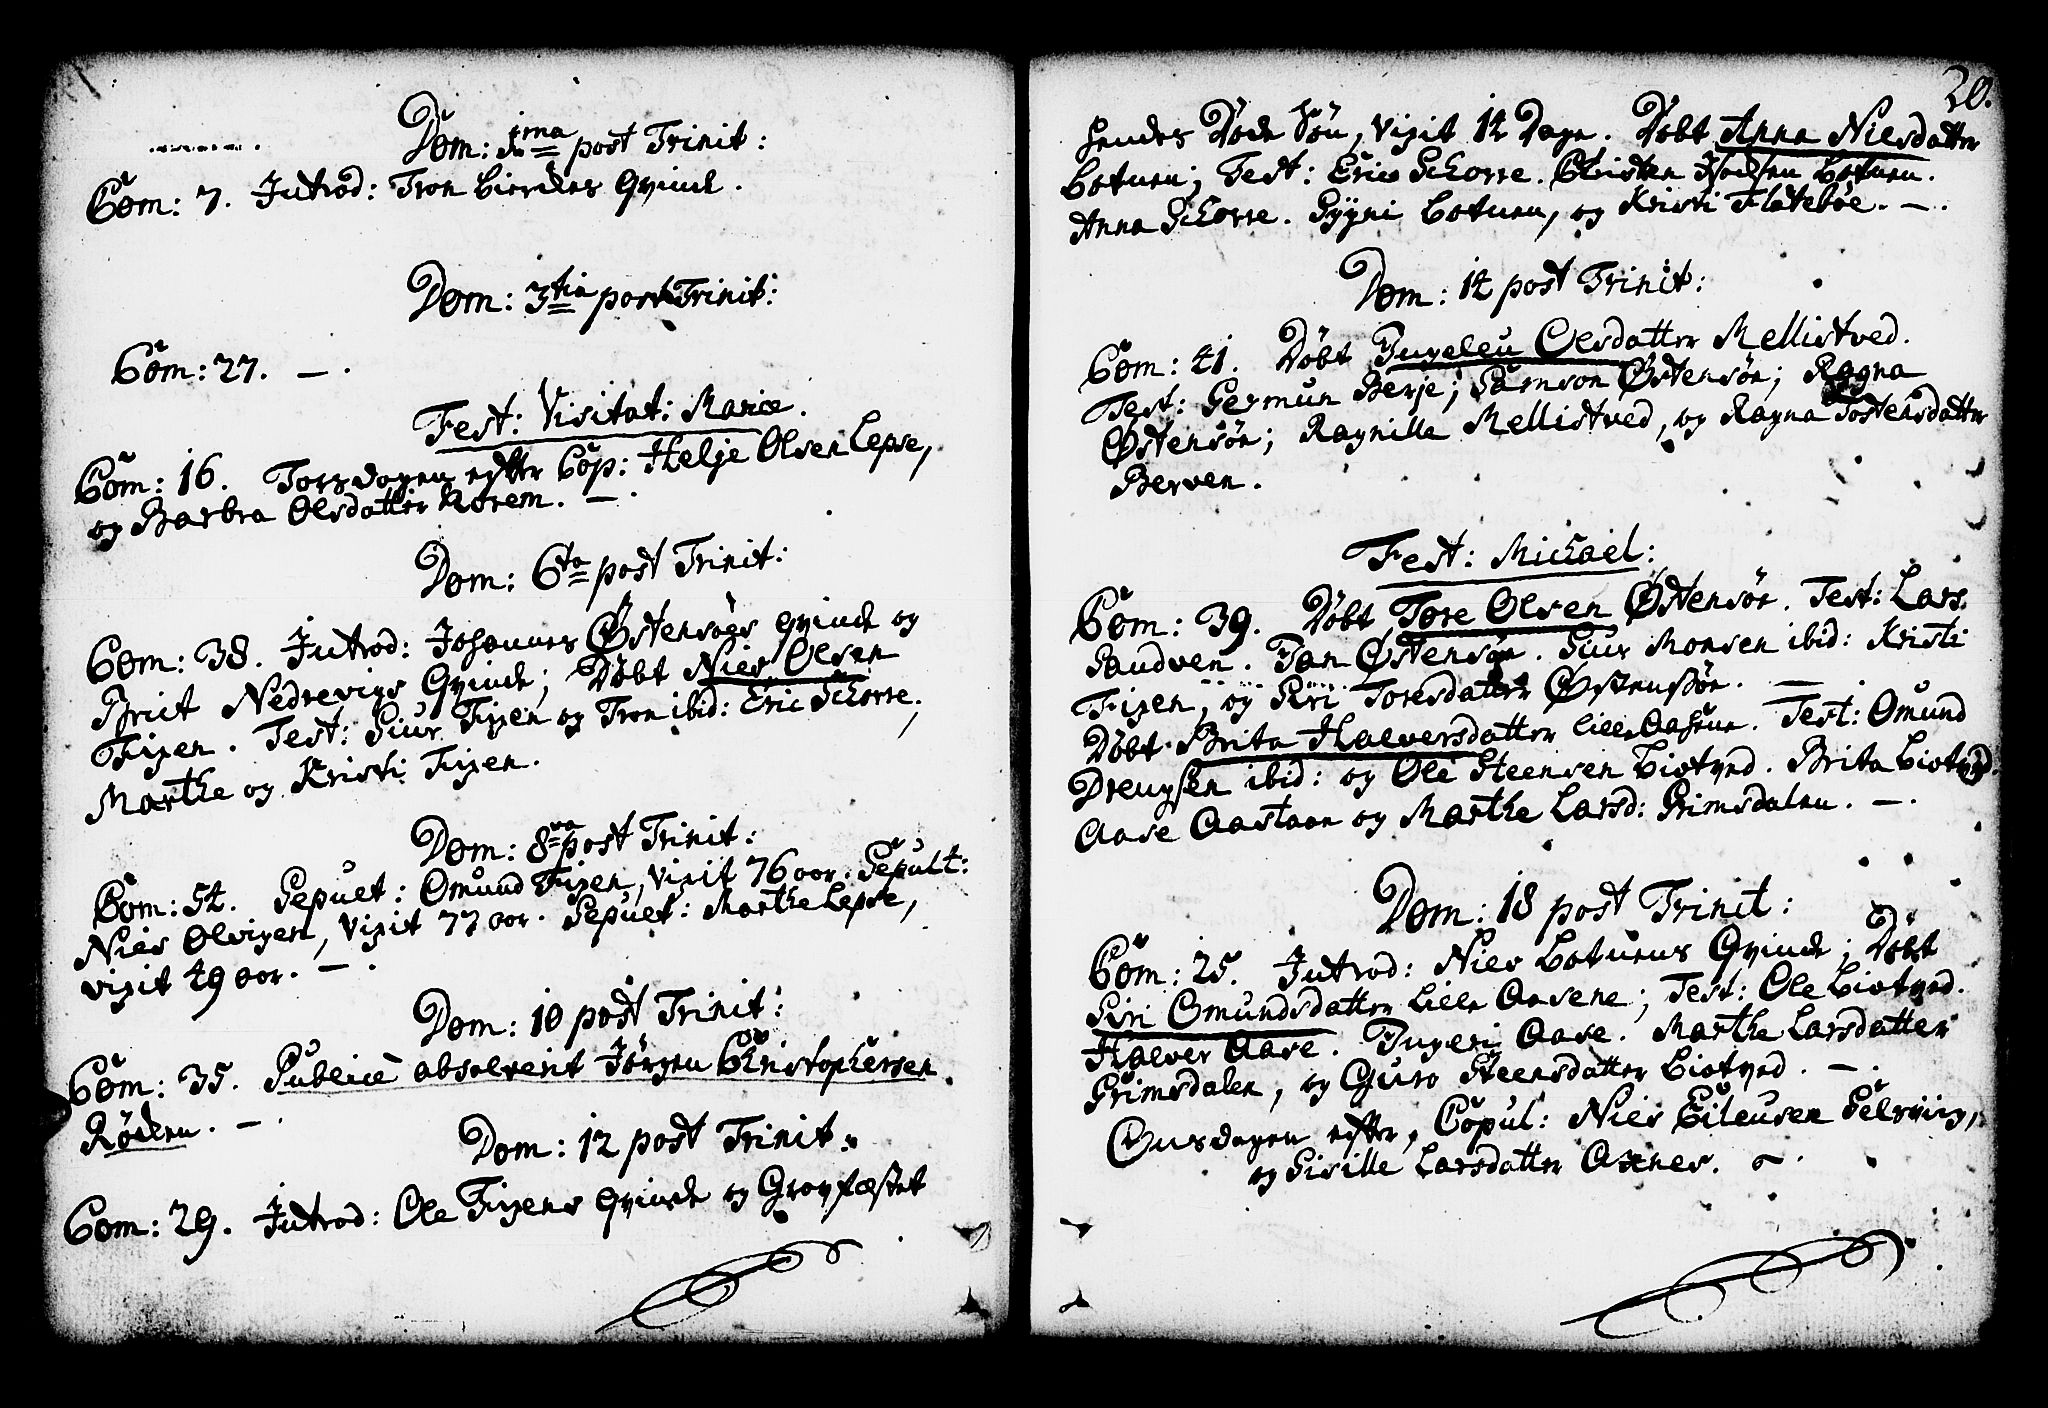 Dom: 1ma post Trinit:
Com: 7. Introd: Tron Qvinde.
Dom: 3tia post Trinit:
Com: 27. —.
Fest: Visitat: Mariæ.
Com: 16. Torsdagen efter Cop: Helje Olsen Lepse,
og Barbra Olsdatter Norem. —.
Dom: 6ta post Trinit:
Com: 38. Introd: Johannes Østensøes Qvinde og
Brict Nedrevigs Qvinde; Døbt Niels Olsen
Fixen. Test: Siur Fixen og Tron ibid: Eric Schorre,
Marthe og Kristi Fixen.
Dom: 8va post Trinit:
Com: 54. Sepult: Omund Fixen, vixit 76 aar. Sepult:
Niels Olvigen, vixit 77 aar. Sepult: Marthe Lepse,
vixit 49 aar. —.
Dom: 10 post Trinit:
Com: 35. Publice absolverit Jørgen Christophersen
Røden. —.
Dom: 12 post Trinit:
Com: 29. Introd: Ole Fixens Qvinde og Gravfæstet
20.
hendes Døde Søn, vixit 14 Dage. Døbt Anna Nielsdatter
Botnen; Test: Eric Schorre. Christen Botnen.
Anna Schorre. Sygni Botnen, og Kristi Flatebøe. —.
Dom: 14 post Trinit:
Com: 41. Døbt Ingeleu Olsdatter Mellistved.
Test: Germun Berje; Samson Østensøe; Ragna
Østensøe; Ragnille Mellistved, og Ragna Tostensdatter
Berven.
Fest: Michael:
Com: 39. Døbt Tore Olsen Østensøe. Test: Lars
Sandven. Jan Østensøe. Siur Monsen ibid: Kristi
Fixen, og Siri Toresdatter Østensøe. —.
Døbt Brita Halversdatter Lille Aasene. Test: Omund
Drengsen ibid: og Ole Steensen Liotved. Brita Liotved.
Aase Aastaae og Marthe Larsd: Grimsdalen. —.
Dom: 18 post Trinit:
Com: 25. Introd: Niels Botnens Qvinde; Døbt
Siri Omundsdatter Lille Aasene; Test: Ole Liotved.
Halver Aase. Ingeri Aase. Marthe Larsdatter
Grimsdalen, og Guro Steensdatter Liotved. —.
Onsdagen efter, Copul: Niels Eilensen Selsviig,
og Sisille Larsdatter Axnes. —.